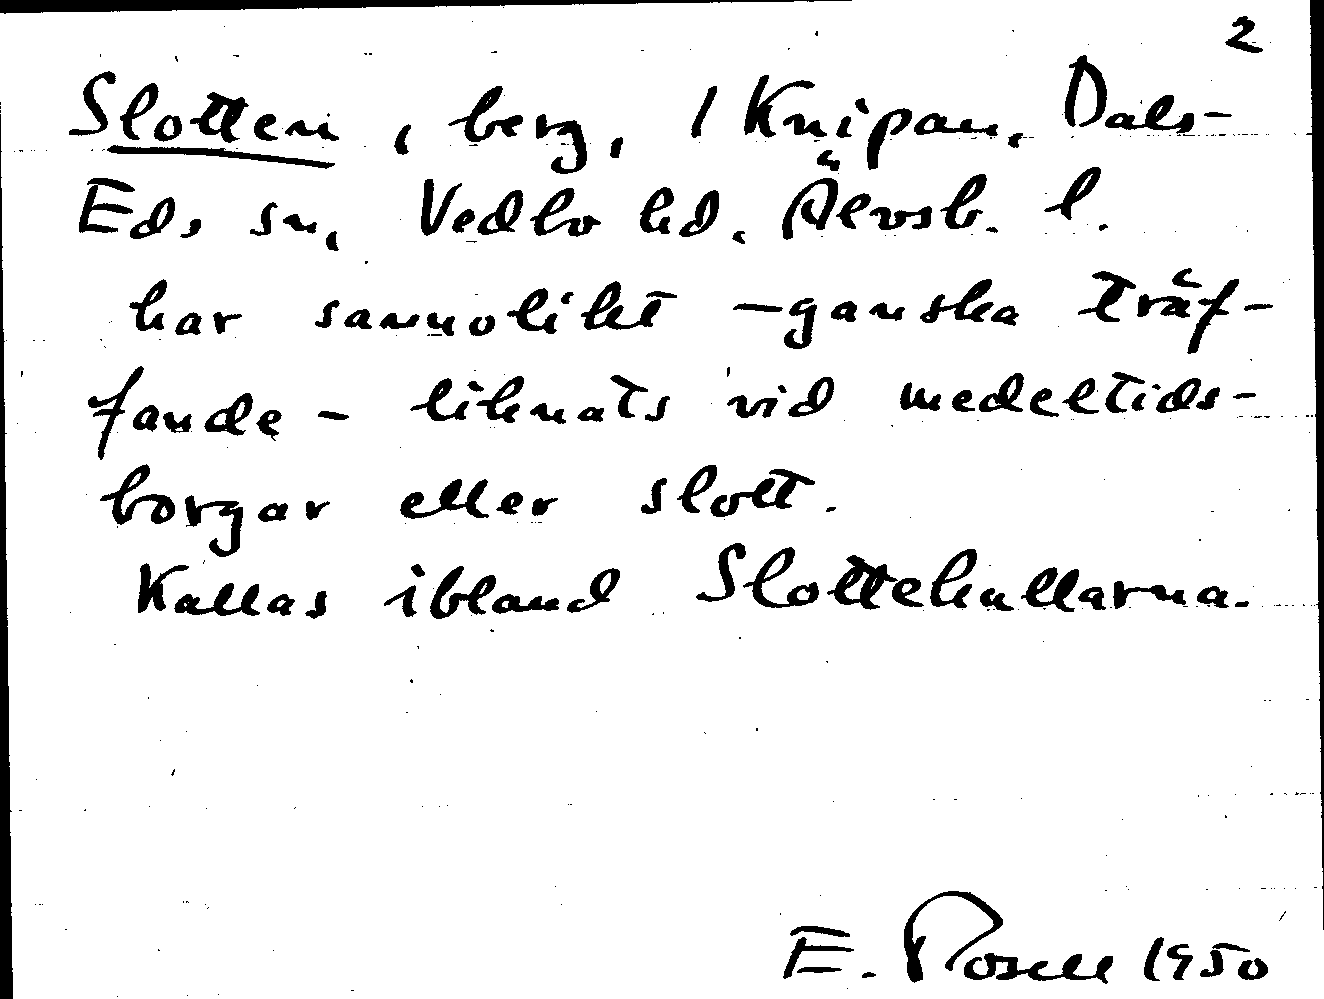 2
Slotten, berg, 1 Knipan, Dals-
Eds sn, Vedbo hd, Älvsb. l.
har sannolikt - ganska träf-
fande - liknats vid medeltids-
borgar eller slott.
Kallas ibland Slottehallarna.
E. Rosell 1950